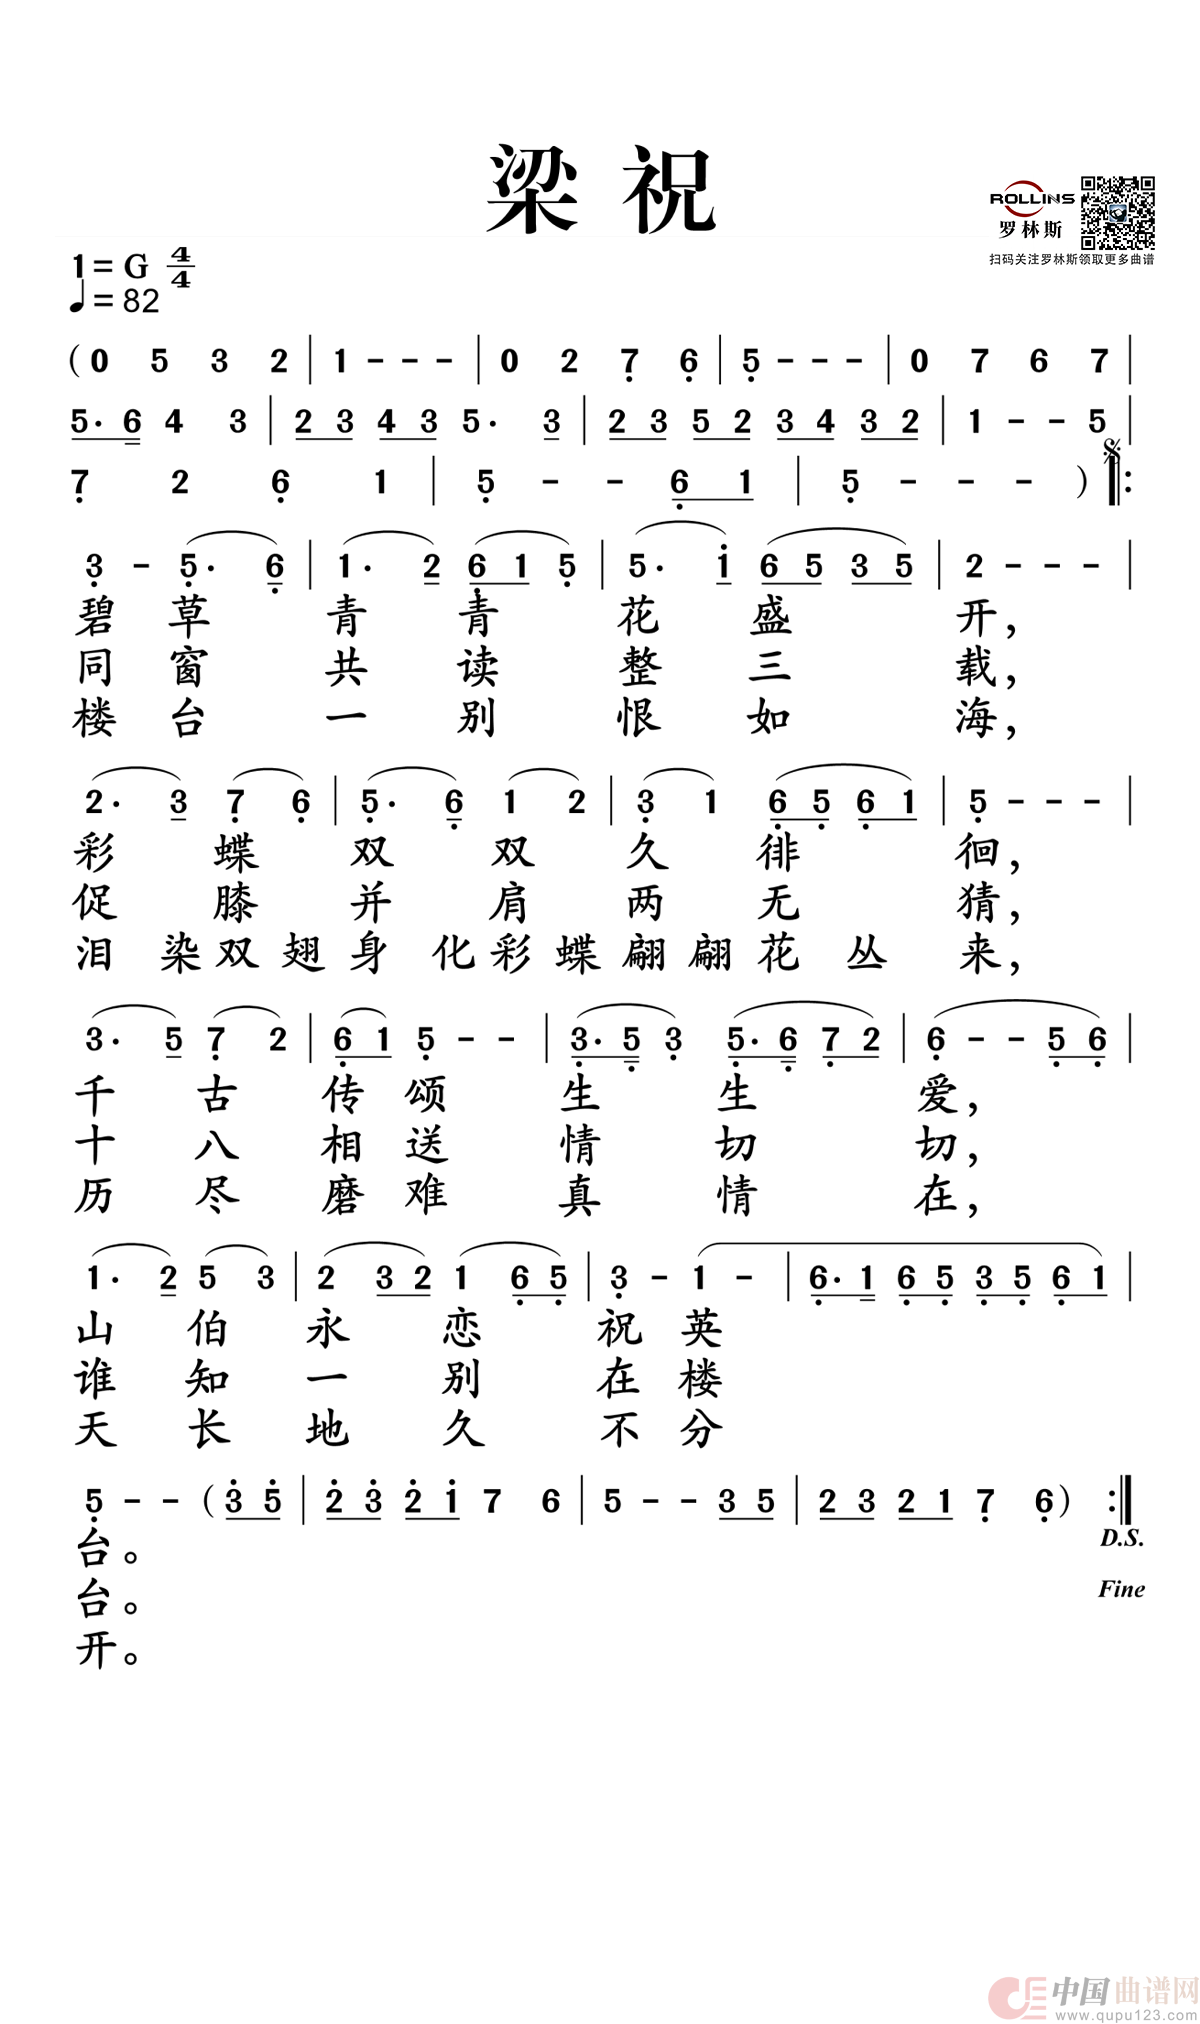 梁祝
ROLLINS
罗林斯
扫码关注罗林斯领取更多曲谱
1=G 4/4
♩=82
(0 5 3 2 | 1 - - - | 0 2 7̣ 6̣ | 5̣ - - - | 0 7 6 7 |
5. 6 4 3 | 2 3 4 3 5. 3 | 2 3 5 2 3 4 3 2 | 1 - - 5 |
7̣ 2 6̣ 1 | 5̣ - - 6̣ 1 | 5̣ - - - ) 𝄋 ‖:
3̣ - 5̣. 6̣ | 1. 2 6̣ 1 5̣ | 5. i 6 5 3 5 | 2 - - - |
碧草青青花盛开，
同窗共读整三载，
楼台一别恨如海，
2. 3 7̣ 6̣ | 5̣. 6̣ 1 2 | 3̣ 1 6̣ 5̣ 6̣ 1 | 5̣ - - - |
彩蝶双双久徘徊，
促膝并肩两无猜，
泪染双翅身化彩蝶翩翩花丛来，
3. 5 7̣ 2 | 6̣ 1 5̣ - - | 3̣. 5̣ 3̣ 5̣. 6̣ 7̣ 2 | 6̣ - - 5̣ 6̣ |
千古传颂生生爱，
十八相送情切切，
历尽磨难真情在，
1. 2 5 3 | 2 3 2 1 6̣ 5̣ | 3̣ - 1 - | 6̣. 1 6̣ 5̣ 3̣ 5̣ 6̣ 1 |
山伯永恋祝英
谁知一别在楼
天长地久不分
5̣ - - (3̇ 5̇ | 2̇ 3̇ 2̇ 1̇ 7 6 | 5 - - 3 5 | 2 3 2 1 7̣ 6̣) :‖
台。
D.S.
台。
Fine
开。
中国曲谱网
www.qupu123.com